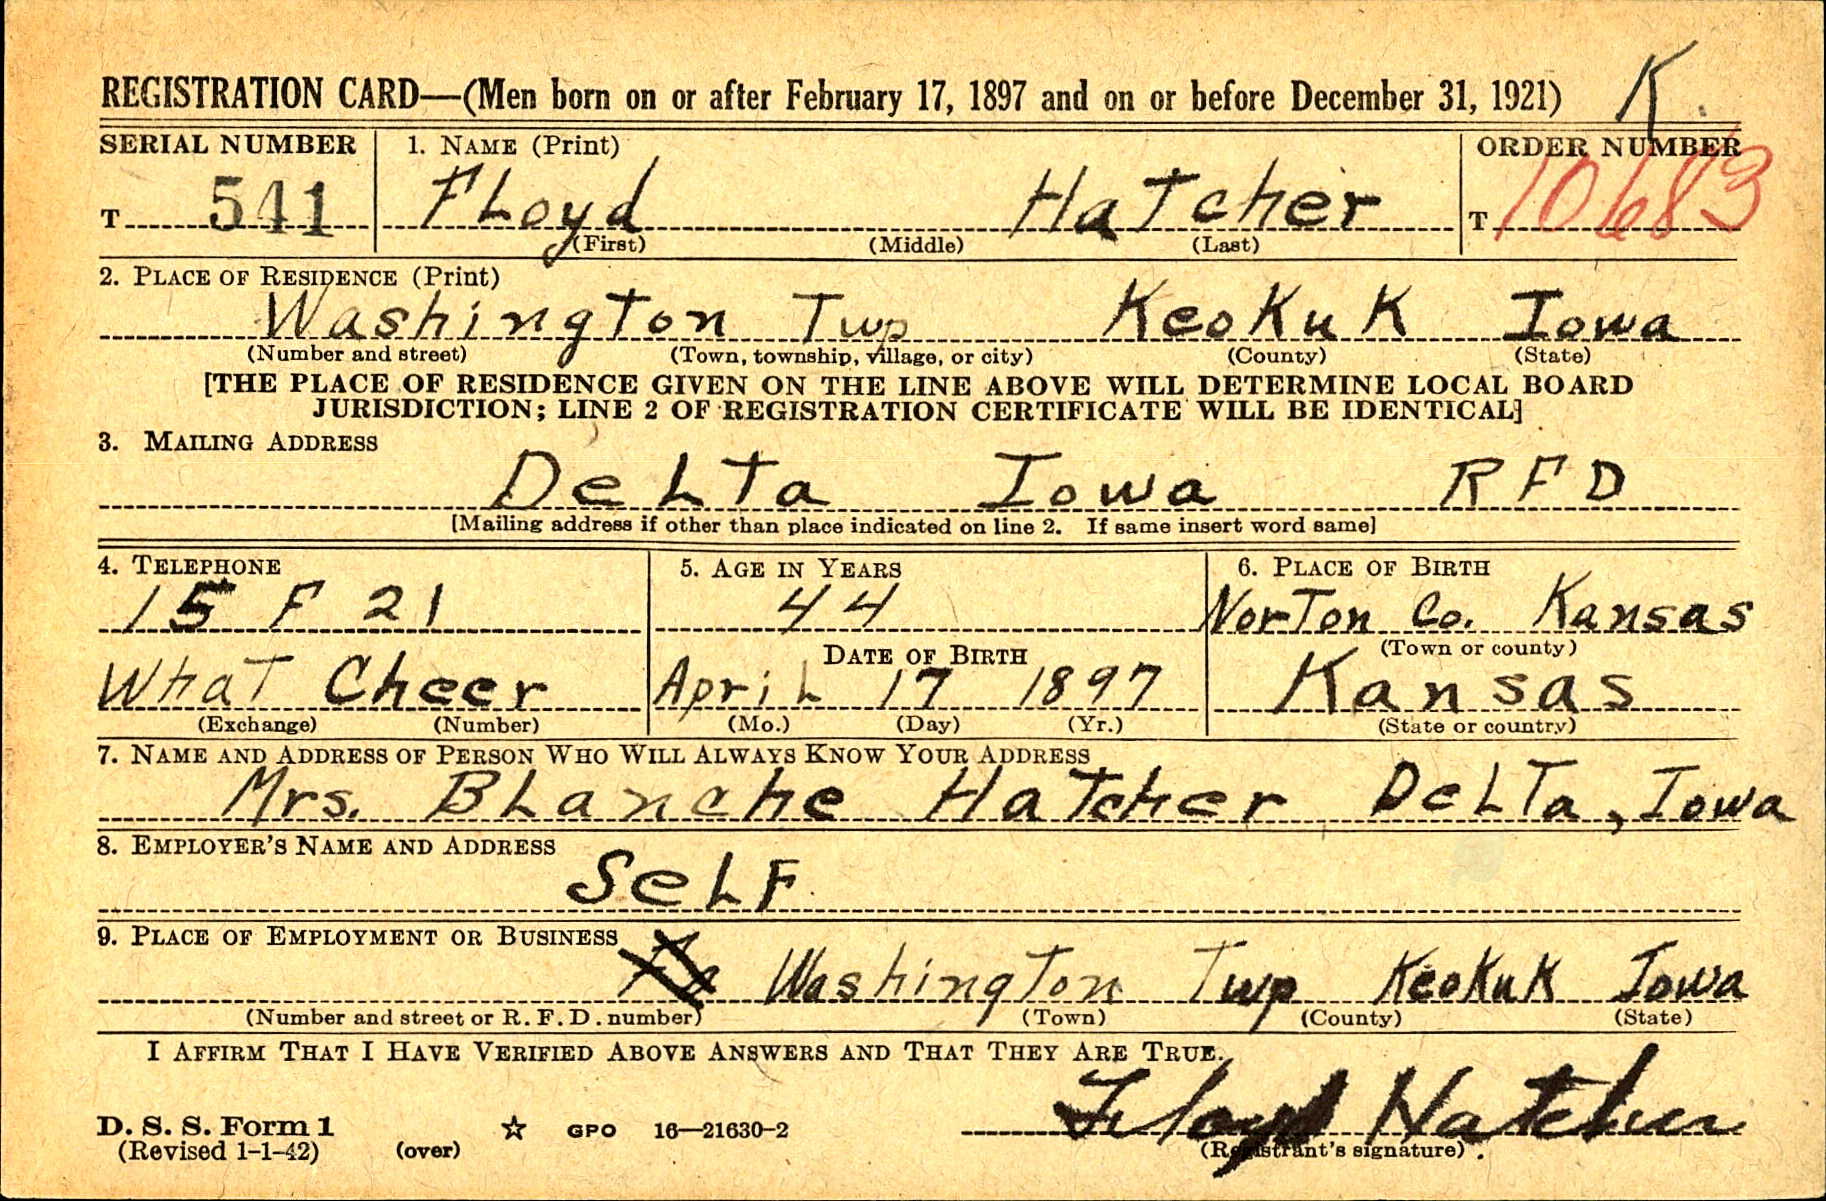 REGISTRATION CARD—(Men born on or after February 17, 1897 and on or before December 31, 1921) K.
SERIAL NUMBER 1. NAME (Print) ORDER NUMBER
T 541 FLoyd HaTcher T 10683
(First) (Middle) (Last)
2. PLACE OF RESIDENCE (Print)
WashingTon Twp KeoKuK Iowa
(Number and street) (Town, township, village, or city) (County) (State)
[THE PLACE OF RESIDENCE GIVEN ON THE LINE ABOVE WILL DETERMINE LOCAL BOARD
JURISDICTION; LINE 2 OF REGISTRATION CERTIFICATE WILL BE IDENTICAL]
3. MAILING ADDRESS
DeLTa Iowa RFD
[Mailing address if other than place indicated on line 2. If same insert word same]
4. TELEPHONE 5. AGE IN YEARS 6. PLACE OF BIRTH
15 F 21 44 NorTon Co. Kansas
DATE OF BIRTH (Town or county)
WhaT Cheer ApriL 17 1897 Kansas
(Exchange) (Number) (Mo.) (Day) (Yr.) (State or country)
7. NAME AND ADDRESS OF PERSON WHO WILL ALWAYS KNOW YOUR ADDRESS
Mrs. BLanche HaTcher DeLTa, Iowa
8. EMPLOYER'S NAME AND ADDRESS
SeLF
9. PLACE OF EMPLOYMENT OR BUSINESS
WashingTon Twp KeoKuK Iowa
(Number and street or R. F. D. number) (Town) (County) (State)
I AFFIRM THAT I HAVE VERIFIED ABOVE ANSWERS AND THAT THEY ARE TRUE.
Floyd Hatcher
D. S. S. Form 1 ☆ GPO 16—21630-2
(Revised 1-1-42) (over) (Registrant's signature)